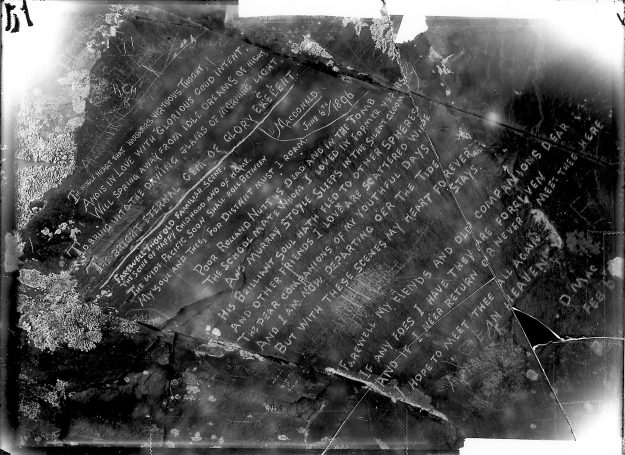 Amid in love with glorious good intent,
Will spring away from idle dreams of night
To bring instead darling gleams of morning light
The bright eternal gem of glory excellent
D. C. Macdonald
June 6th 1896
Farewell thou old familiar scene
Scene of happy childhood and of home.
The wide Pacific soon shall role between
My soul and thee, for distant must I roam
Poor Rolland Nutt is dead and in the tomb
The schoolmate whom I loved in former years
And Murray Stoyle sleeps in the silent gloom
His brilliant soul hath fled to other spheres
And other friends I love are scattered wide
The dear companions of my youthful days
And I am now departing oer the tide
But with these scenes my heart forever stays.
Farewell my fiends and old companions dear
If any foes I have they are forgiven
And if I neer return or never meet thee here
I hope to meet thee all again
In Heaven
D. Mac
Feb
R C H
K